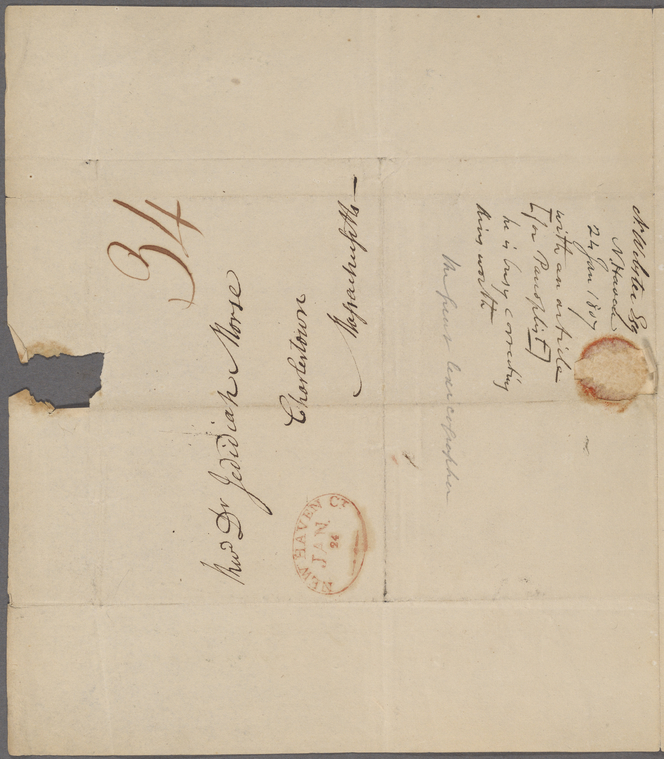 34
Revd Dr Jedidiah Morse
Charlestown
Massachusetts
NEW HAVEN Ct
JAN
24
N. Webster Esq
N Haven
24 Jan 1807
with an article
[for Panoplist]
he is busy correcting
lexicographer